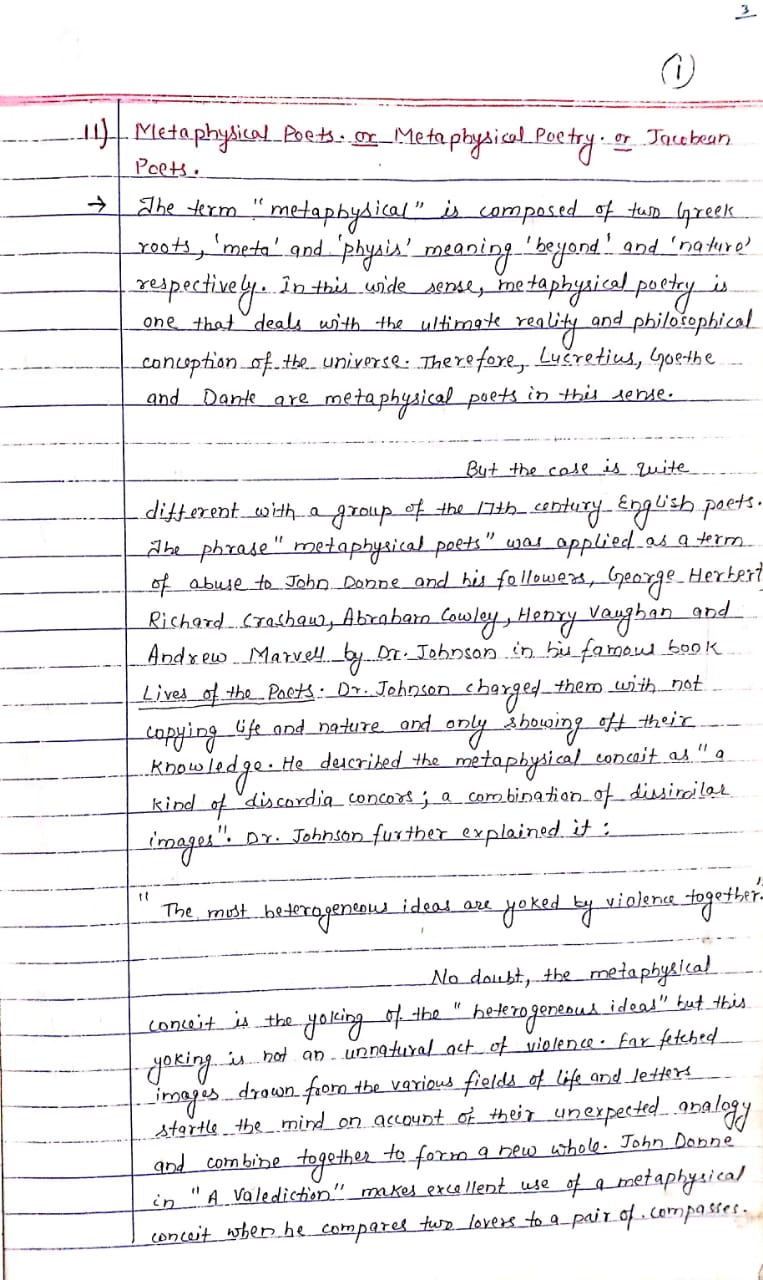 3
1
11) Metaphysical Poets. or Metaphysical Poetry. or Jacobean
Poets.
→ The term "metaphysical" is composed of two Greek
roots, 'meta' and 'physis' meaning 'beyond' and 'nature'
respectively. In this wide sense, metaphysical poetry is
one that deals with the ultimate reality and philosophical
conception of the universe. Therefore, Lucretius, Goethe
and Dante are metaphysical poets in this sense.
But the case is quite
different with a group of the 17th century English poets.
The phrase "metaphysical poets" was applied as a term
of abuse to John Donne and his followers, George Herbert
Richard Crashaw, Abraham Cowley, Henry Vaughan and
Andrew Marvell by Dr. Johnson in his famous book
Lives of the Poets. Dr. Johnson charged them with not
copying life and nature and only showing off their
knowledge. He described the metaphysical conceit as "a
kind of discordia concors; a combination of dissimilar
images". Dr. Johnson further explained it :
"The most heterogeneous ideas are yoked by violence together."
No doubt, the metaphysical
conceit is the yoking of the "heterogeneous ideas" but this
yoking is not an unnatural act of violence. Far fetched
images drawn from the various fields of life and letters
startle the mind on account of their unexpected analogy
and combine together to form a new whole. John Donne
in "A Valediction" makes excellent use of a metaphysical
conceit when he compares two lovers to a pair of compasses.